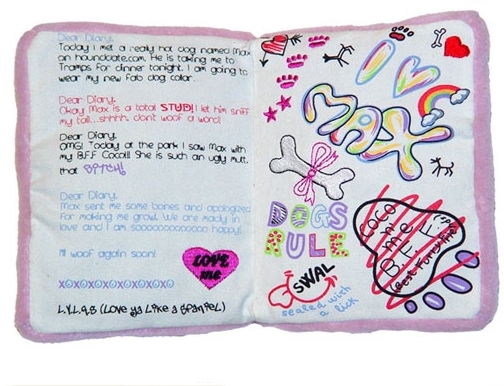 Dear Diary,
Today I met a really hot dog named Max
on hounddate.com. He is taking me to
Tramps for dinner tonight. I am going to
wear my new fab dog color...
Dear Diary,
Okay Max is a total STUD! I let him sniff
my tail...shhhh, dont woof a word!
Dear Diary,
OMG! Today at the park I saw Max with
my B.F.F Coco!! She is such an ugly mutt,
that B*TCH!
Dear Diary,
Max sent me some bones and apologized
for making me growl. We are madly in
love and I am soooooooooooooo happy!
I'll woof again soon!
XOXOXOXOXOXOXOXO
L.Y.L.A.S (Love ya Like a Spaniel)
LOVE
me
I
MAX
DOGS
RULE
SWAL
sealed with
a lick
COCO
n
me
B.F.F.
(Best Furry Friends)